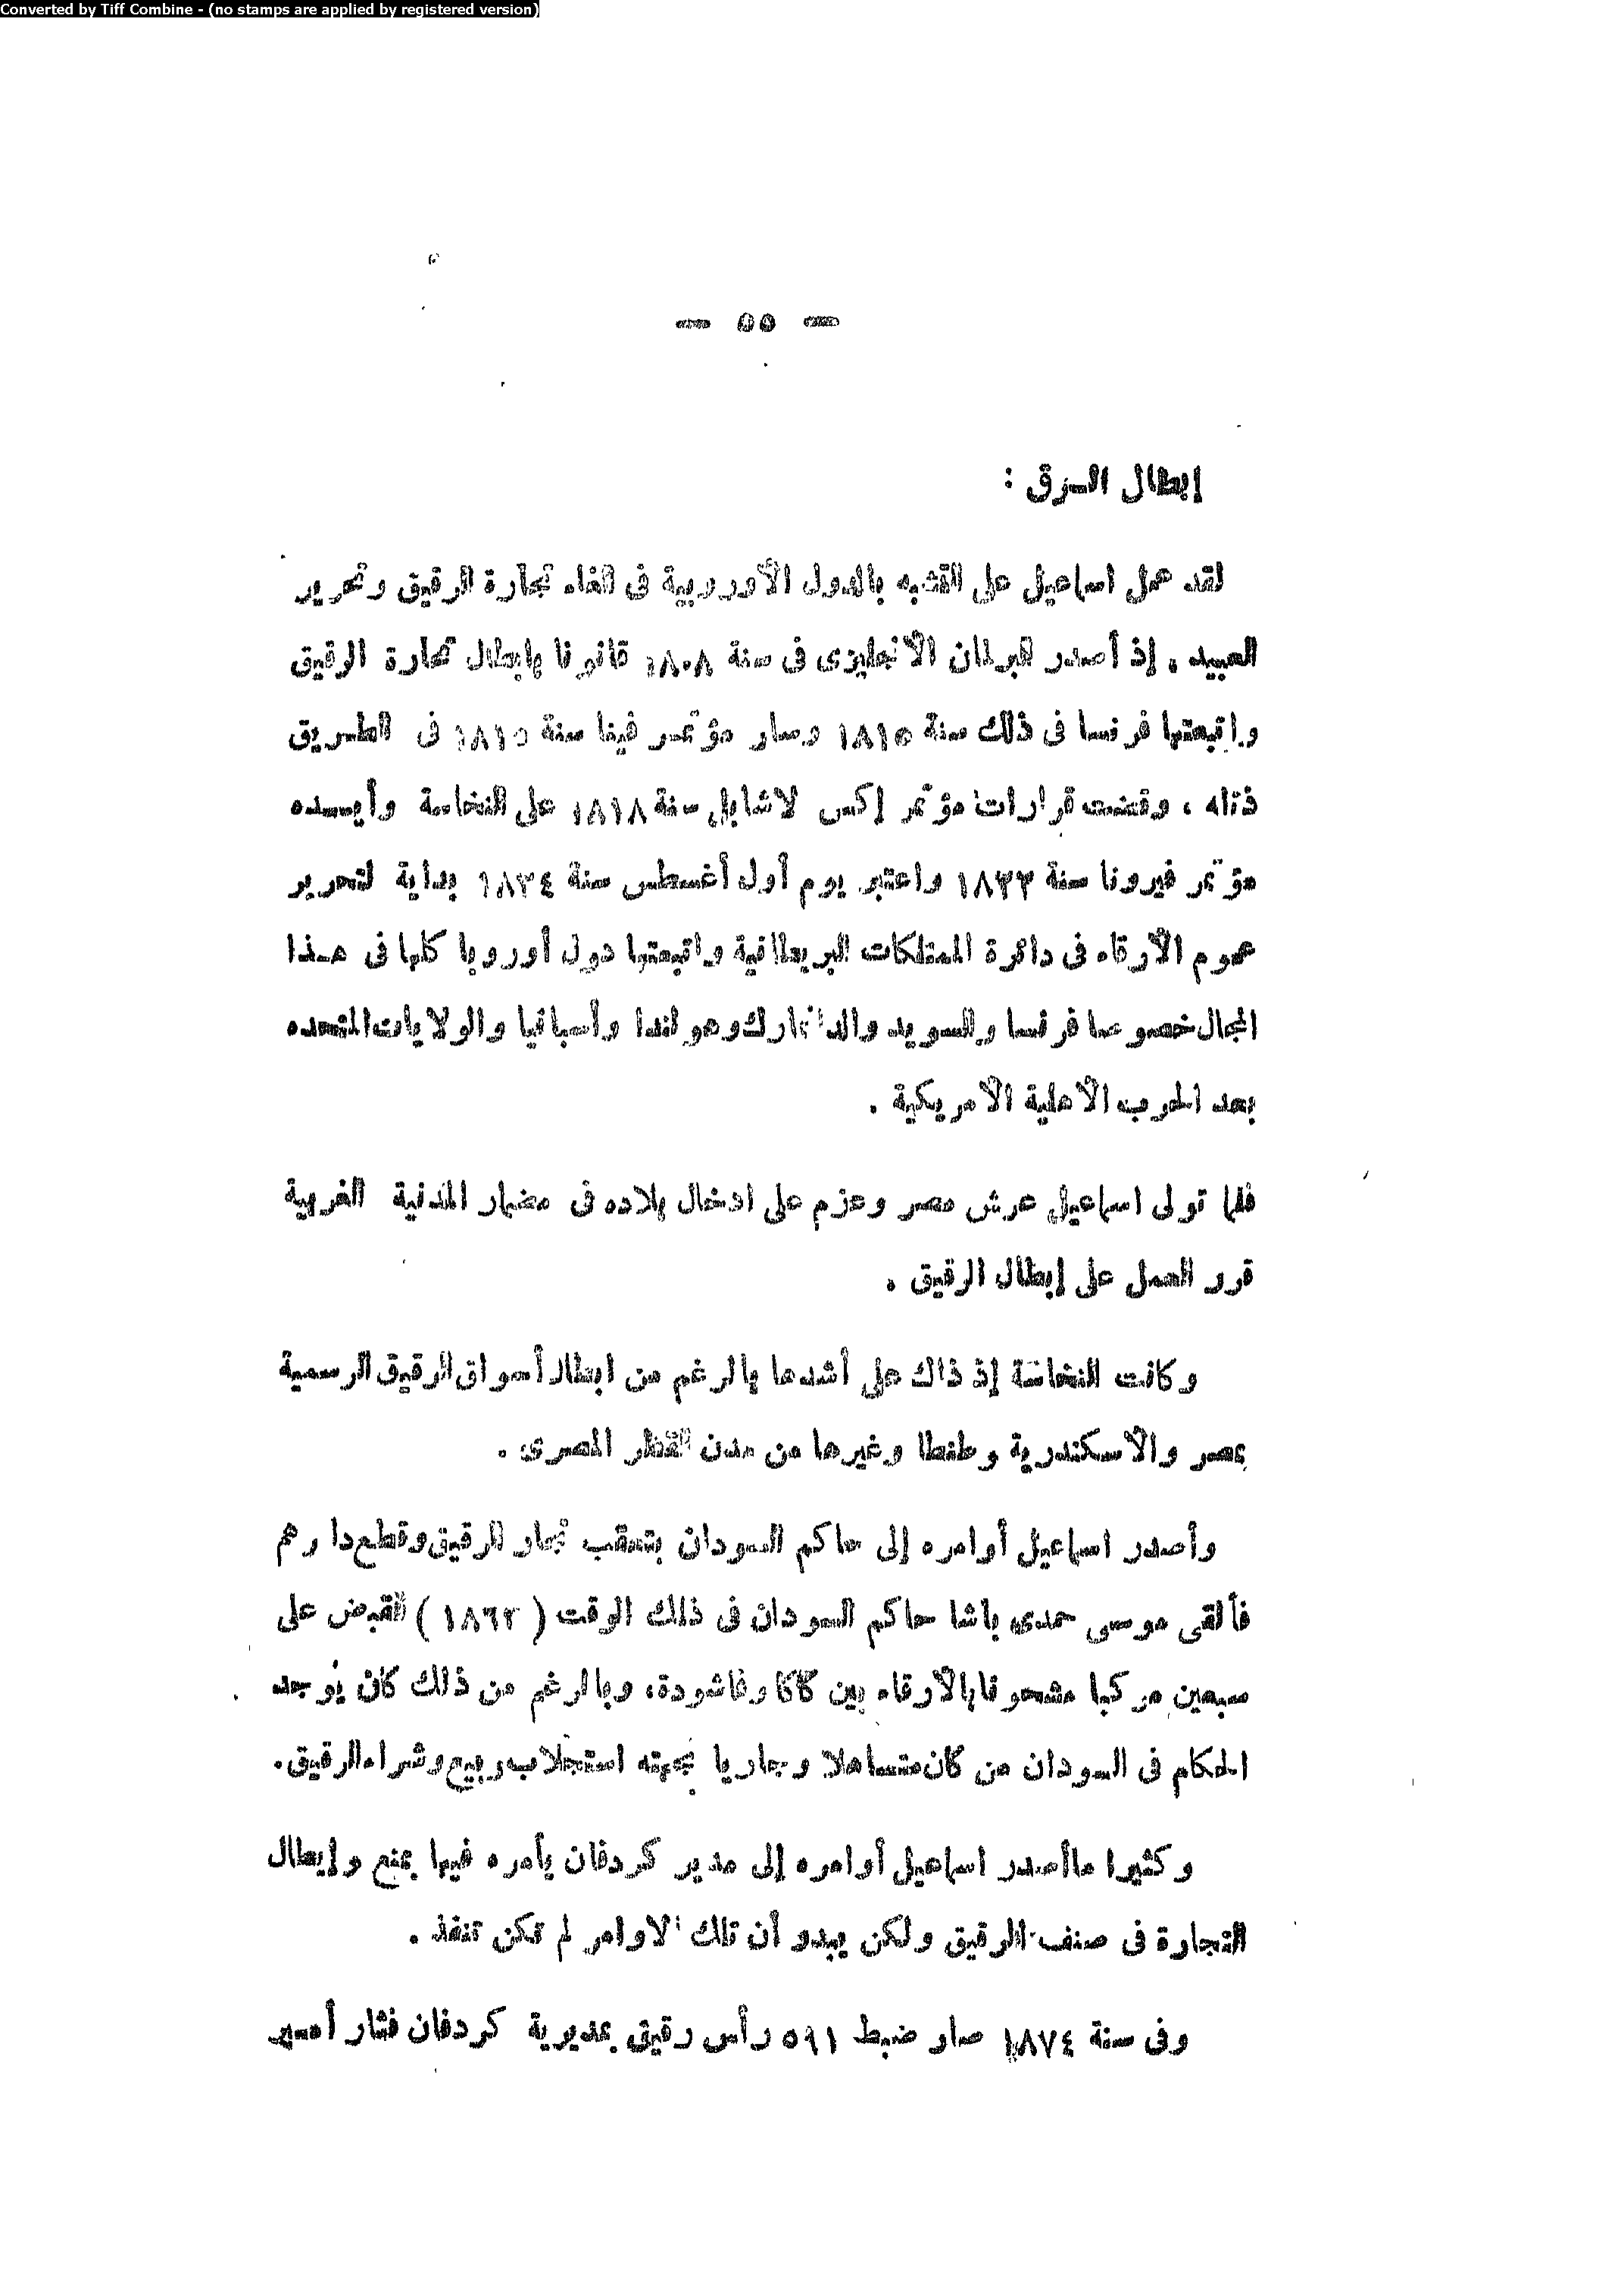 Converted by Tiff Combine - (no stamps are applied by registered version)
— ٥٥ —
إبطال الرق :
لقد عمل اسماعيل على التشبه بالدول الأوروبية فى الغاء تجارة الرقيق وتحرير
العبيد . إذ أصدر البرلمان الأنجليزى فى سنة ١٨٠٨ قانونا بإبطال تجارة الرقيق
واتبعتها فرنسا فى ذلك سنة ١٨١٥ وسار مؤتمر فينا سنة ١٨١٥ فى الطريق
ذاته ، وقضت قرارات مؤتمر إكس لاشابل سنة ١٨١٨ على النخاسة وأيده
مؤتمر فيرونا سنة ١٨٣٣ واعتبر يوم أول أغسطس سنة ١٨٣٤ بداية لتحرير
عموم الأرقاء فى دائرة الممتلكات البريطانية واتبعتها دول أوروبا كلها فى هذا
المجال خصوصا فرنسا والسويد والدانمارك وهولندا وأسبانيا والولايات المتحده
بعد الحرب الأهلية الأمريكية .
فلما تولى اسماعيل عرش مصر وعزم على ادخال بلاده فى مضمار المدنية الغربية
قرر العمل على إبطال الرقيق .
وكانت النخاسة إذ ذاك على أشدها بالرغم من ابطال أسواق الرقيق الرسمية
بمصر والأسكندرية وطنطا وغيرها من مدن القطر المصرى .
وأصدر اسماعيل أوامره إلى حاكم السودان بتعقب تجار الرقيق وقطع دا رهم
فألقى موسى حمدى باشا حاكم السودان فى ذلك الوقت ( ١٨٦٢ ) القبض على
سبعين مركبا مشحونا بالأرقاء بين كاكا وفاشودة، وبالرغم من ذلك كان يوجد
الحكام فى السودان من كان متساهلا وجاريا بجهته استجلاب وبيع وشراء الرقيق.
وكثيرا ما أصدر اسماعيل أوامره إلى مدير كردفان يأمره فيها بمنع وإبطال
التجارة فى صنف الرقيق ولكن يبدو أن تلك الاوامر لم تكن تنفذ .
وفى سنة ١٨٧٤ صار ضبط ٥٩١ رأس رقيق بمديرية كردفان فثار أمير